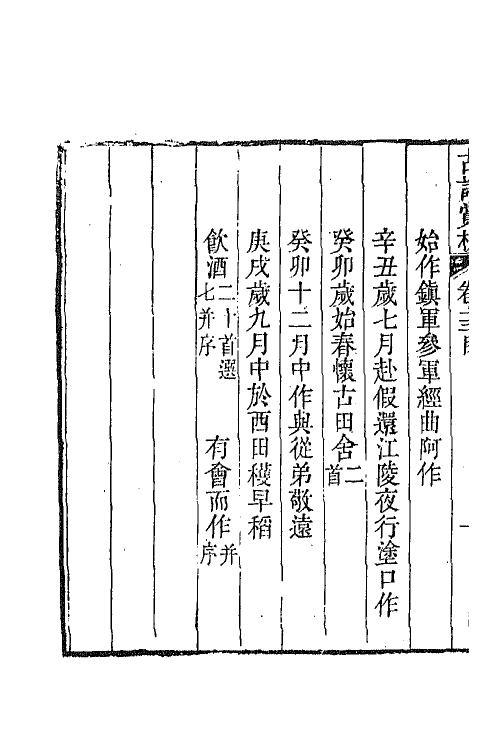 始作鎮軍參軍經曲阿作
辛丑歲七月赴假還江陵夜行塗口作
癸卯歲始春懷古田舍二首
癸卯十二月中作與從弟敬遠
庚戌歲九月中於西田穫早稻
飲酒二十首選七并序 有會而作并序